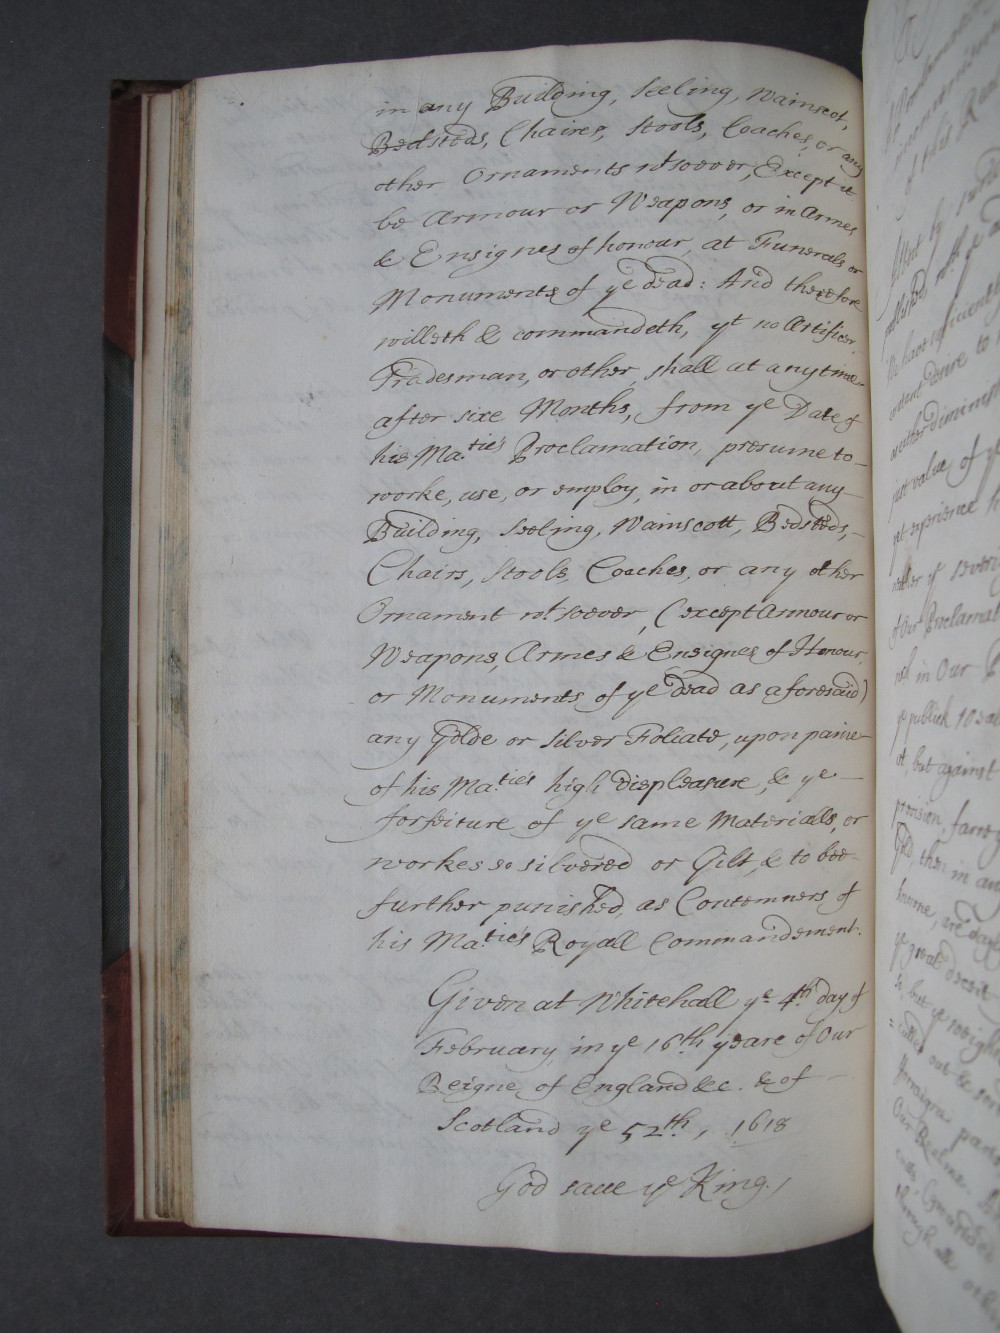 in any Building, Seeling, Wainscot,
Bedsteds, Chaires, Stools, Coaches, or any
other Ornaments wt.soever, Except it
be Armour or Weapons, or in Armes
& Ensignes of honour, at Funerals or
Monuments of ye dead: And therefore
willeth & commandeth, yt no Artificer,
Tradesman, or other, shall at any time
after sixe Months, from ye Date of
his Ma.ties Proclamation, presume to
worke, use, or employ, in or about any
Building, Seeling, Wainscott, Bedsteds,
Chairs, Stools, Coaches, or any other
Ornament wt.soever, (except Armour or
Weapons, Armes & Ensignes of Honour,
or Monuments of ye dead as aforesaid)
any Golde or Silver Foliate, upon paine
of his Ma.ties high displeasure, & ye
forfeiture of ye same Materialls, or
workes so silvered or Gilt, & to bee
further punished, as Contemners of
his Ma.ties Royall Commandement.
Given at Whitehall ye 4th day of
February, in ye 16th yeare of Our
Reigne of England &c. & of
Scotland ye 52th, 1618
God save ye King.
of this
Effect by
published, wth ye
We have sufficiently
desire to
just value of ye
yet experience
neither of severity
of Our Proclamat
in Our
ye publick
ot, but against
provision, farre
Gold, then in any
knowne, are dayly
ye great deceit
so, but ye weight
called out & so
Forraigne parts
Our Realme.
through all